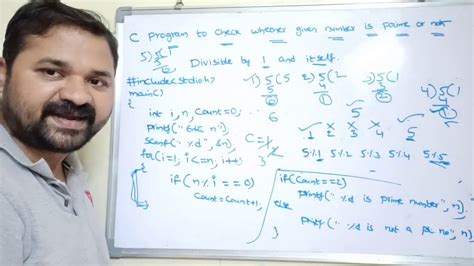 C Program to check whether given number is prime or not
Divisible by 1 and itself.
#include<stdio.h>
main()
{
int i, n, Count=0;
printf("Enter n");
scanf("%d", &n);
for(i=1; i<=n; i++)
{
if(n%i==0)
Count=Count+1;
}
if(Count==2)
printf("%d is prime number", n);
else
printf("%d is not a pr no", n)
1) 5) 5 (1
2) 5 (2
4
3) 5 (1
4) 5 (1
4
5) 5 (1
1 2 3 4 5
5%1 5%2 5%3 5%4 5%5